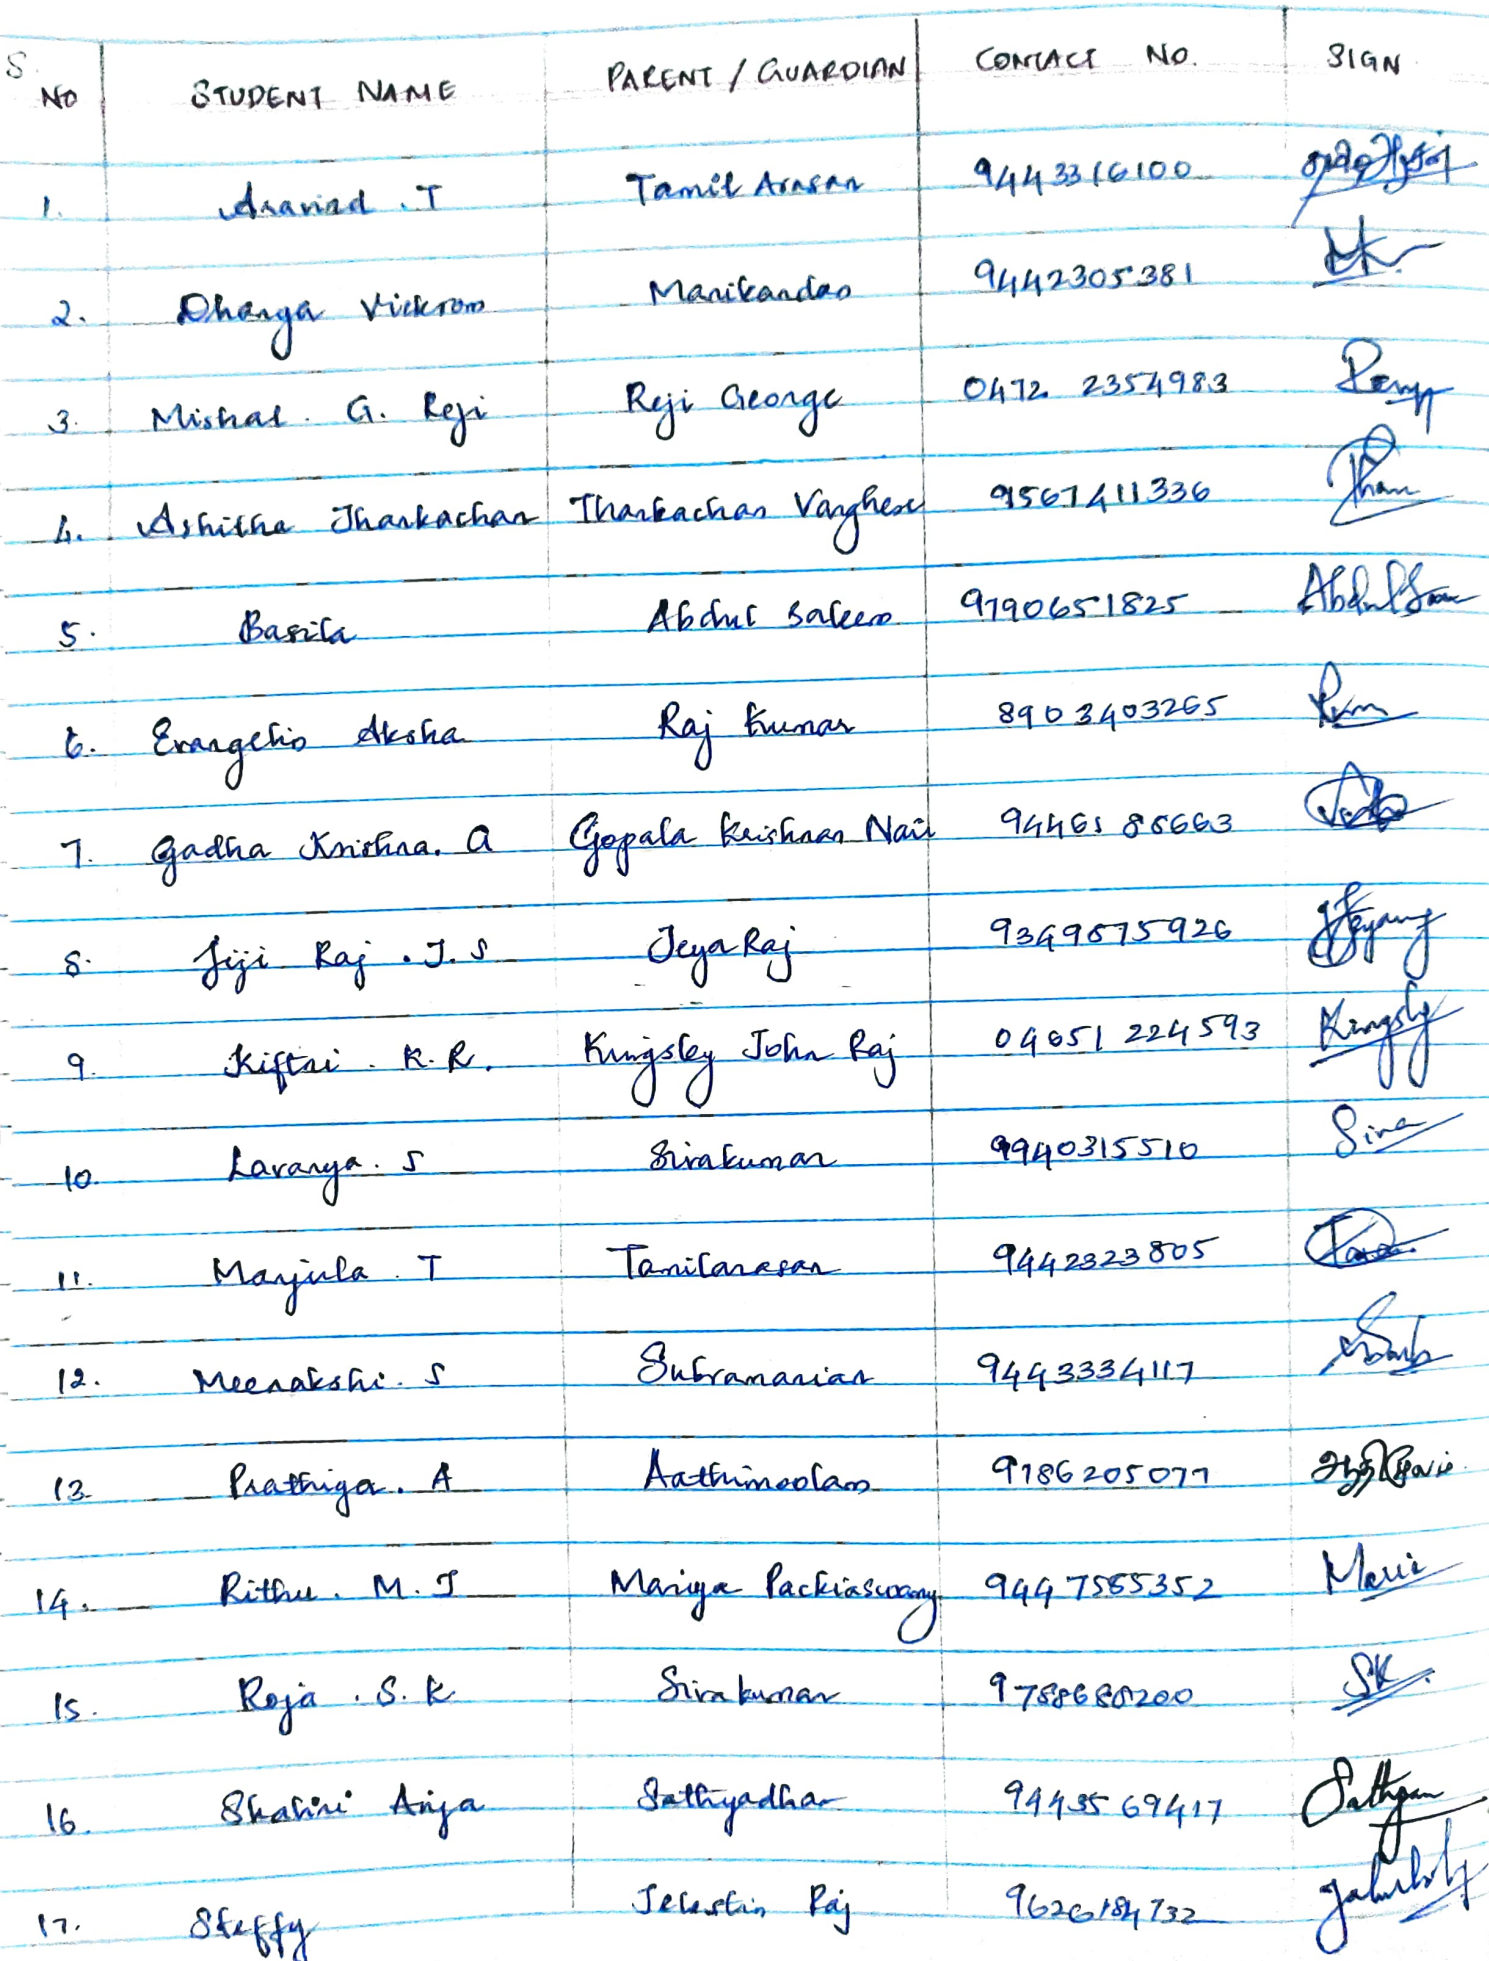 S. NO STUDENT NAME PARENT / GUARDIAN CONTACT NO. SIGN
1. Aravind . T Tamil Arasan 9443316100
2. Dhanya Vickrom Manikandan 9442305381
3. Mishal . G. Reji Reji George 0472 2354983
4. Ashitha Thankachan Thankachan Varghese 9567411336 Than
5. Basila Abdul Saleem 9790651825
6. Evangelin Aksha Raj Kumar 8903403265
7. Gadha Krishna. G Gopala Krishnan Nair
8. Jiji Raj . J. S Jeya Raj
9. Kiftni . K. R. Kingsley John Raj 04651 224593 Kingsly
10. Lavanya. S Sivakumar 9940315510 Siva
11. Manjula . T Tamilarasan 9442323805
12. Meenakshi. S Subramanian 9443334117
13. Prathiga. A Aathimoolam 9786205077
14. Rithu. M. J Mariya Packiaswamy 9447585352
15. Roja . S. K Sivakumar SK
16. Shalini Anja Sathyadhar 9443569417
17. Steffy Jelestin Raj 9626184732